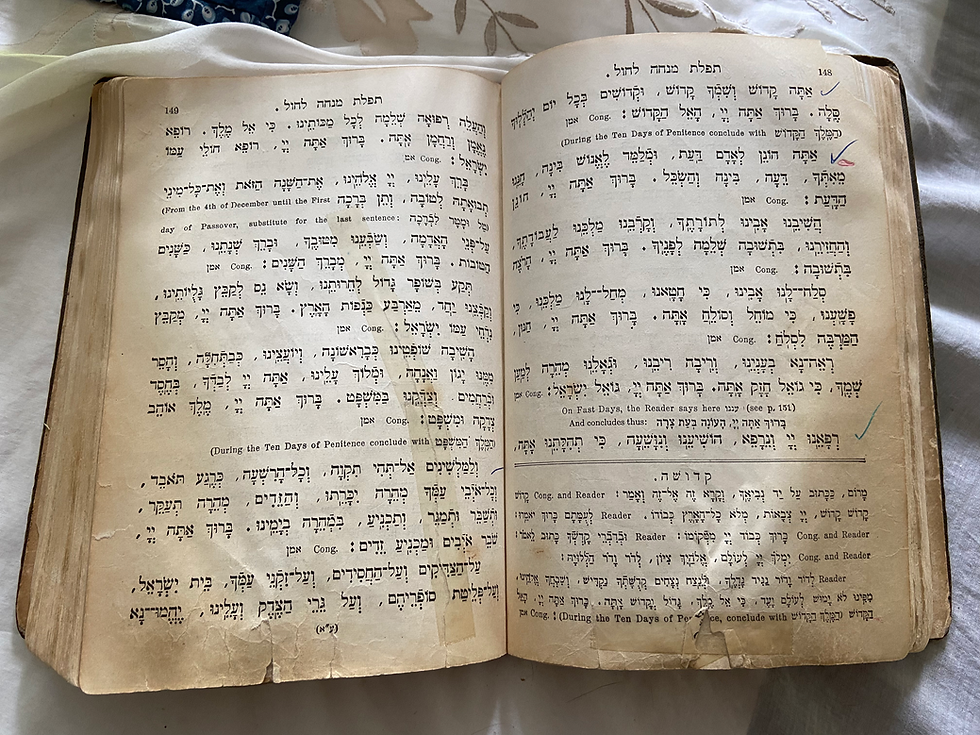 תפלת מנחה לחול.
148
אַתָּה קָדוֹשׁ וְשִׁמְךָ קָדוֹשׁ, וּקְדוֹשִׁים בְּכָל יוֹם יְהַלְלוּךָ
סֶּלָה. בָּרוּךְ אַתָּה יְיָ, הָאֵל הַקָּדוֹשׁ: Cong. אמן
(During the Ten Days of Penitence conclude with הַמֶּלֶךְ הַקָּדוֹשׁ)
אַתָּה חוֹנֵן לְאָדָם דַּעַת, וּמְלַמֵּד לֶאֱנוֹשׁ בִּינָה, חָנֵּנוּ
מֵאִתְּךָ, דֵּעָה, בִּינָה וְהַשְׂכֵּל. בָּרוּךְ אַתָּה יְיָ, חוֹנֵן
הַדָּעַת: Cong. אמן
הֲשִׁיבֵנוּ אָבִינוּ לְתוֹרָתֶךָ, וְקָרְבֵנוּ מַלְכֵּנוּ לַעֲבוֹדָתֶךָ,
וְהַחֲזִירֵנוּ, בִּתְשׁוּבָה שְׁלֵמָה לְפָנֶיךָ. בָּרוּךְ אַתָּה יְיָ, הָרוֹצֶה
בִּתְשׁוּבָה: Cong. אמן
סְלַח־לָנוּ אָבִינוּ, כִּי חָטָאנוּ, מְחַל־לָנוּ מַלְכֵּנוּ, כִּי
פָשָׁעְנוּ, כִּי מוֹחֵל וְסוֹלֵחַ אָתָּה. בָּרוּךְ אַתָּה יְיָ, חַנּוּן,
הַמַּרְבֶּה לִסְלֹחַ: Cong. אמן
רְאֵה־נָא בְעָנְיֵנוּ, וְרִיבָה רִיבֵנוּ, וּגְאָלֵנוּ מְהֵרָה לְמַעַן
שְׁמֶךָ, כִּי גּוֹאֵל חָזָק אָתָּה. בָּרוּךְ אַתָּה יְיָ, גּוֹאֵל יִשְׂרָאֵל: Cong. אמן
On Fast Days, the Reader says here עננו (see p. 151)
And concludes thus: בָּרוּךְ אַתָּה יְיָ, הָעוֹנֶה בְּעֵת צָרָה:
רְפָאֵנוּ יְיָ וְנֵרָפֵא, הוֹשִׁיעֵנוּ וְנִוָּשֵׁעָה, כִּי תְהִלָּתֵנוּ אָתָּה,
קדושה.
מָרוֹם, כַּכָּתוּב עַל יַד נְבִיאֶךָ, וְקָרָא זֶה אֶל־זֶה וְאָמַר: Cong. and Reader קָדוֹשׁ
קָדוֹשׁ קָדוֹשׁ, יְיָ צְבָאוֹת, מְלֹא כָל־הָאָרֶץ כְּבוֹדוֹ. Reader לְעֻמָּתָם בָּרוּךְ יֹאמֵרוּ:
Cong. and Reader בָּרוּךְ כְּבוֹד יְיָ מִמְּקוֹמוֹ: Reader וּבְדִבְרֵי קָדְשְׁךָ כָּתוּב לֵאמֹר:
Cong. and Reader יִמְלֹךְ יְיָ לְעוֹלָם, אֱלֹהַיִךְ צִיּוֹן, לְדֹר וָדֹר הַלְלוּיָהּ:
Reader לְדוֹר וָדוֹר נַגִּיד גָּדְלֶךָ, וּלְנֵצַח נְצָחִים קְדֻשָּׁתְךָ נַקְדִּישׁ, וְשִׁבְחֲךָ אֱלֹהֵינוּ,
מִפִּינוּ לֹא יָמוּשׁ לְעוֹלָם וָעֶד, כִּי אֵל מֶלֶךְ, גָּדוֹל וְקָדוֹשׁ אָתָּה. בָּרוּךְ אַתָּה יְיָ, הָאֵל
הַקָּדוֹשׁ Cong. אמן: (During the Ten Days of Penitence, conclude with הַמֶּלֶךְ הַקָּדוֹשׁ)
תפלת מנחה לחול.
149
וְהַעֲלֵה רְפוּאָה שְׁלֵמָה לְכָל מַכּוֹתֵינוּ. כִּי אֵל מֶלֶךְ, רוֹפֵא
נֶאֱמָן וְרַחֲמָן אָתָּה. בָּרוּךְ אַתָּה יְיָ, רוֹפֵא חוֹלֵי עַמּוֹ
יִשְׂרָאֵל: Cong. אמן
בָּרֵךְ עָלֵינוּ, יְיָ אֱלֹהֵינוּ, אֶת־הַשָּׁנָה הַזֹּאת וְאֶת־כָּל־מִינֵי
תְבוּאָתָהּ לְטוֹבָה, וְתֵן בְּרָכָה (From the 4th of December until the First
day of Passover, substitute for the last sentence: וְתֵן טַל וּמָטָר לִבְרָכָה)
עַל־פְּנֵי הָאֲדָמָה, וְשַׂבְּעֵנוּ מִטּוּבֶךָ, וּבָרֵךְ שְׁנָתֵנוּ, כַּשָּׁנִים
הַטּוֹבוֹת. בָּרוּךְ אַתָּה יְיָ, מְבָרֵךְ הַשָּׁנִים: Cong. אמן
תְּקַע בְּשׁוֹפָר גָּדוֹל לְחֵרוּתֵנוּ, וְשָׂא נֵס לְקַבֵּץ גָּלֻיּוֹתֵינוּ,
וְקַבְּצֵנוּ יַחַד, מֵאַרְבַּע כַּנְפוֹת הָאָרֶץ. בָּרוּךְ אַתָּה יְיָ, מְקַבֵּץ
נִדְחֵי עַמּוֹ יִשְׂרָאֵל: Cong. אמן
הָשִׁיבָה שׁוֹפְטֵינוּ כְּבָרִאשׁוֹנָה, וְיוֹעֲצֵינוּ, כְּבַתְּחִלָּה, וְהָסֵר
מִמֶּנּוּ יָגוֹן וַאֲנָחָה, וּמְלוֹךְ עָלֵינוּ, אַתָּה יְיָ לְבַדְּךָ, בְּחֶסֶד
וּבְרַחֲמִים. וְצַדְּקֵנוּ בַּמִּשְׁפָּט. בָּרוּךְ אַתָּה יְיָ, מֶלֶךְ אוֹהֵב
צְדָקָה וּמִשְׁפָּט: Cong. אמן
(During the Ten Days of Penitence conclude with הַמֶּלֶךְ הַמִּשְׁפָּט)
וְלַמַּלְשִׁינִים אַל־תְּהִי תִקְוָה, וְכָל־הָרִשְׁעָה, כְּרֶגַע תֹּאבֵד,
וְכָל־אוֹיְבֵי עַמְּךָ מְהֵרָה יִכָּרֵתוּ, וְהַזֵּדִים, מְהֵרָה תְעַקֵּר,
וּתְשַׁבֵּר וּתְמַגֵּר, וְתַכְנִיעַ, בִּמְהֵרָה בְיָמֵינוּ. בָּרוּךְ אַתָּה יְיָ,
שֹׁבֵר אֹיְבִים וּמַכְנִיעַ זֵדִים: Cong. אמן
עַל־הַצַּדִּיקִים וְעַל־הַחֲסִידִים, וְעַל־זִקְנֵי עַמְּךָ, בֵּית יִשְׂרָאֵל,
וְעַל־פְּלֵיטַת סוֹפְרֵיהֶם, וְעַל גֵּרֵי הַצֶּדֶק וְעָלֵינוּ, יֶהֱמוּ־נָא
(ע"א)